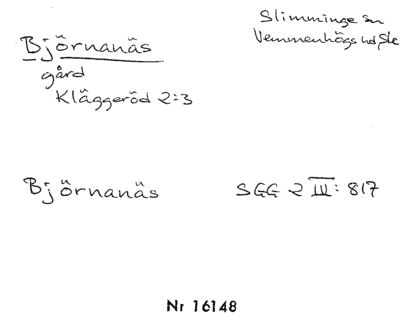 Björnanäs
gård
Kläggeröd 2:3
Slimminge sn
Vemmenhögs hd, Sle
Björnanäs
SGG 2 IV: 817
Nr 16148